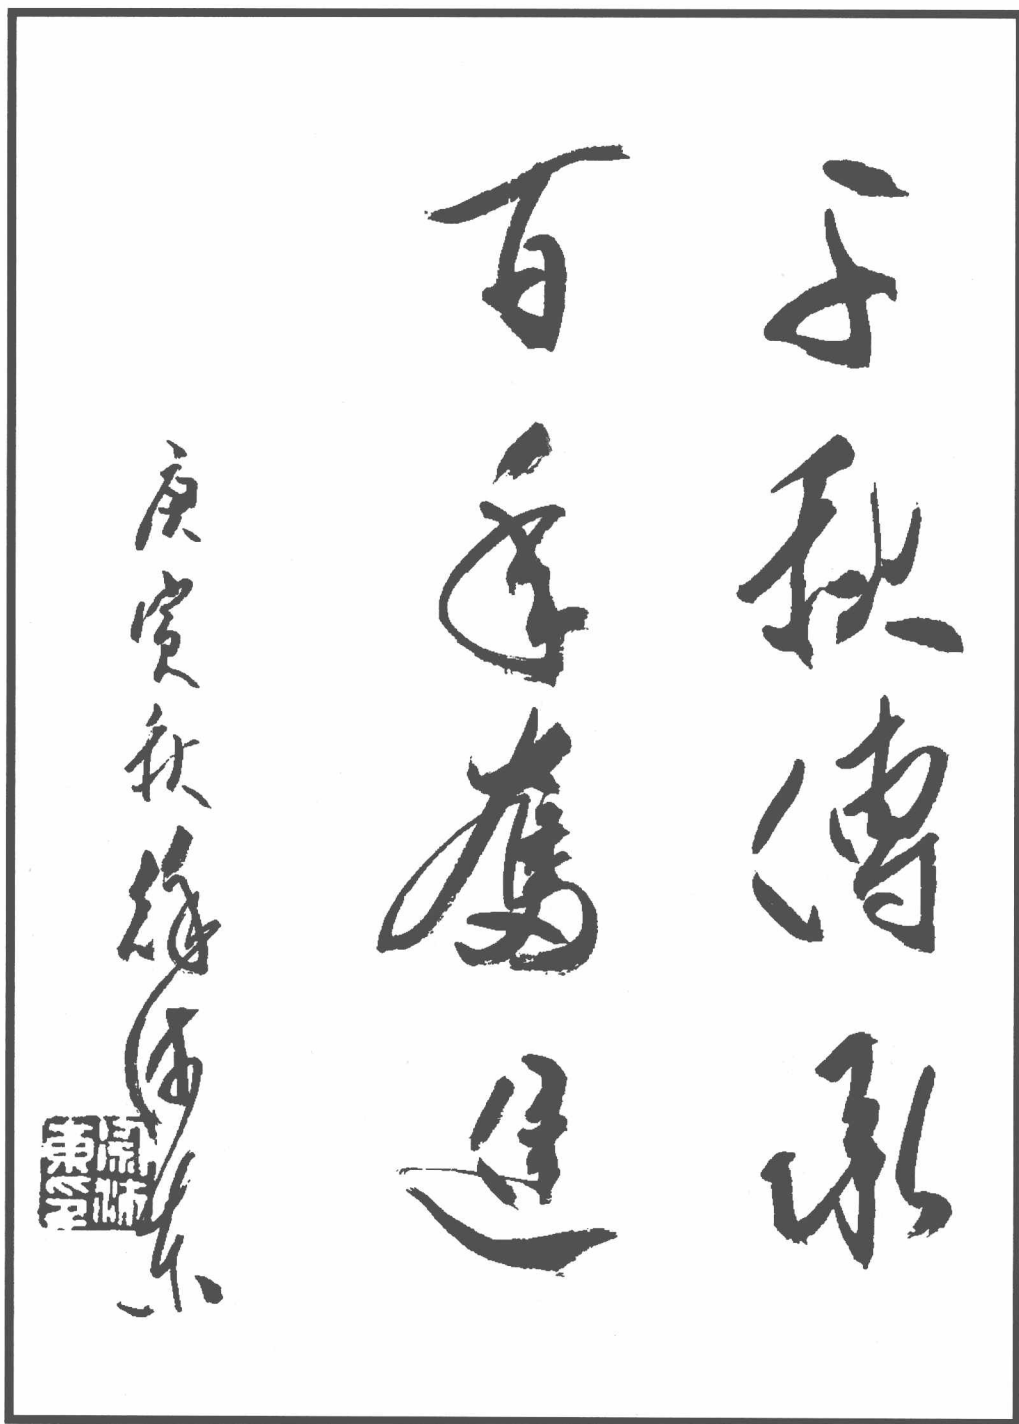 千秋傳承
百年奮進
庚寅秋